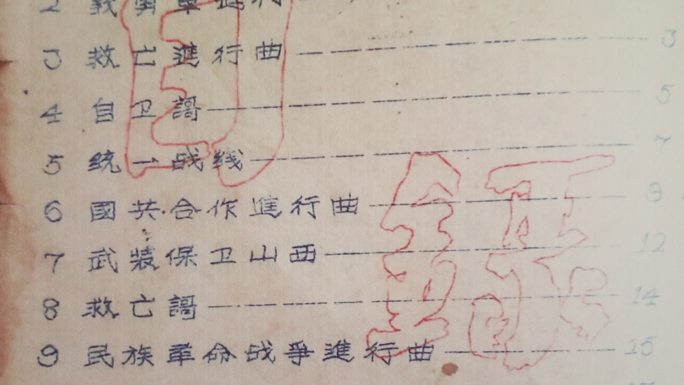 2 義勇軍進行
3 救亡進行曲 3
4 自卫謌 5
5 統一战线 7
6 國共合作進行曲 9
7 武裝保卫山西 12
8 救亡謌 14
9 民族革命战爭進行曲 15
目
錄